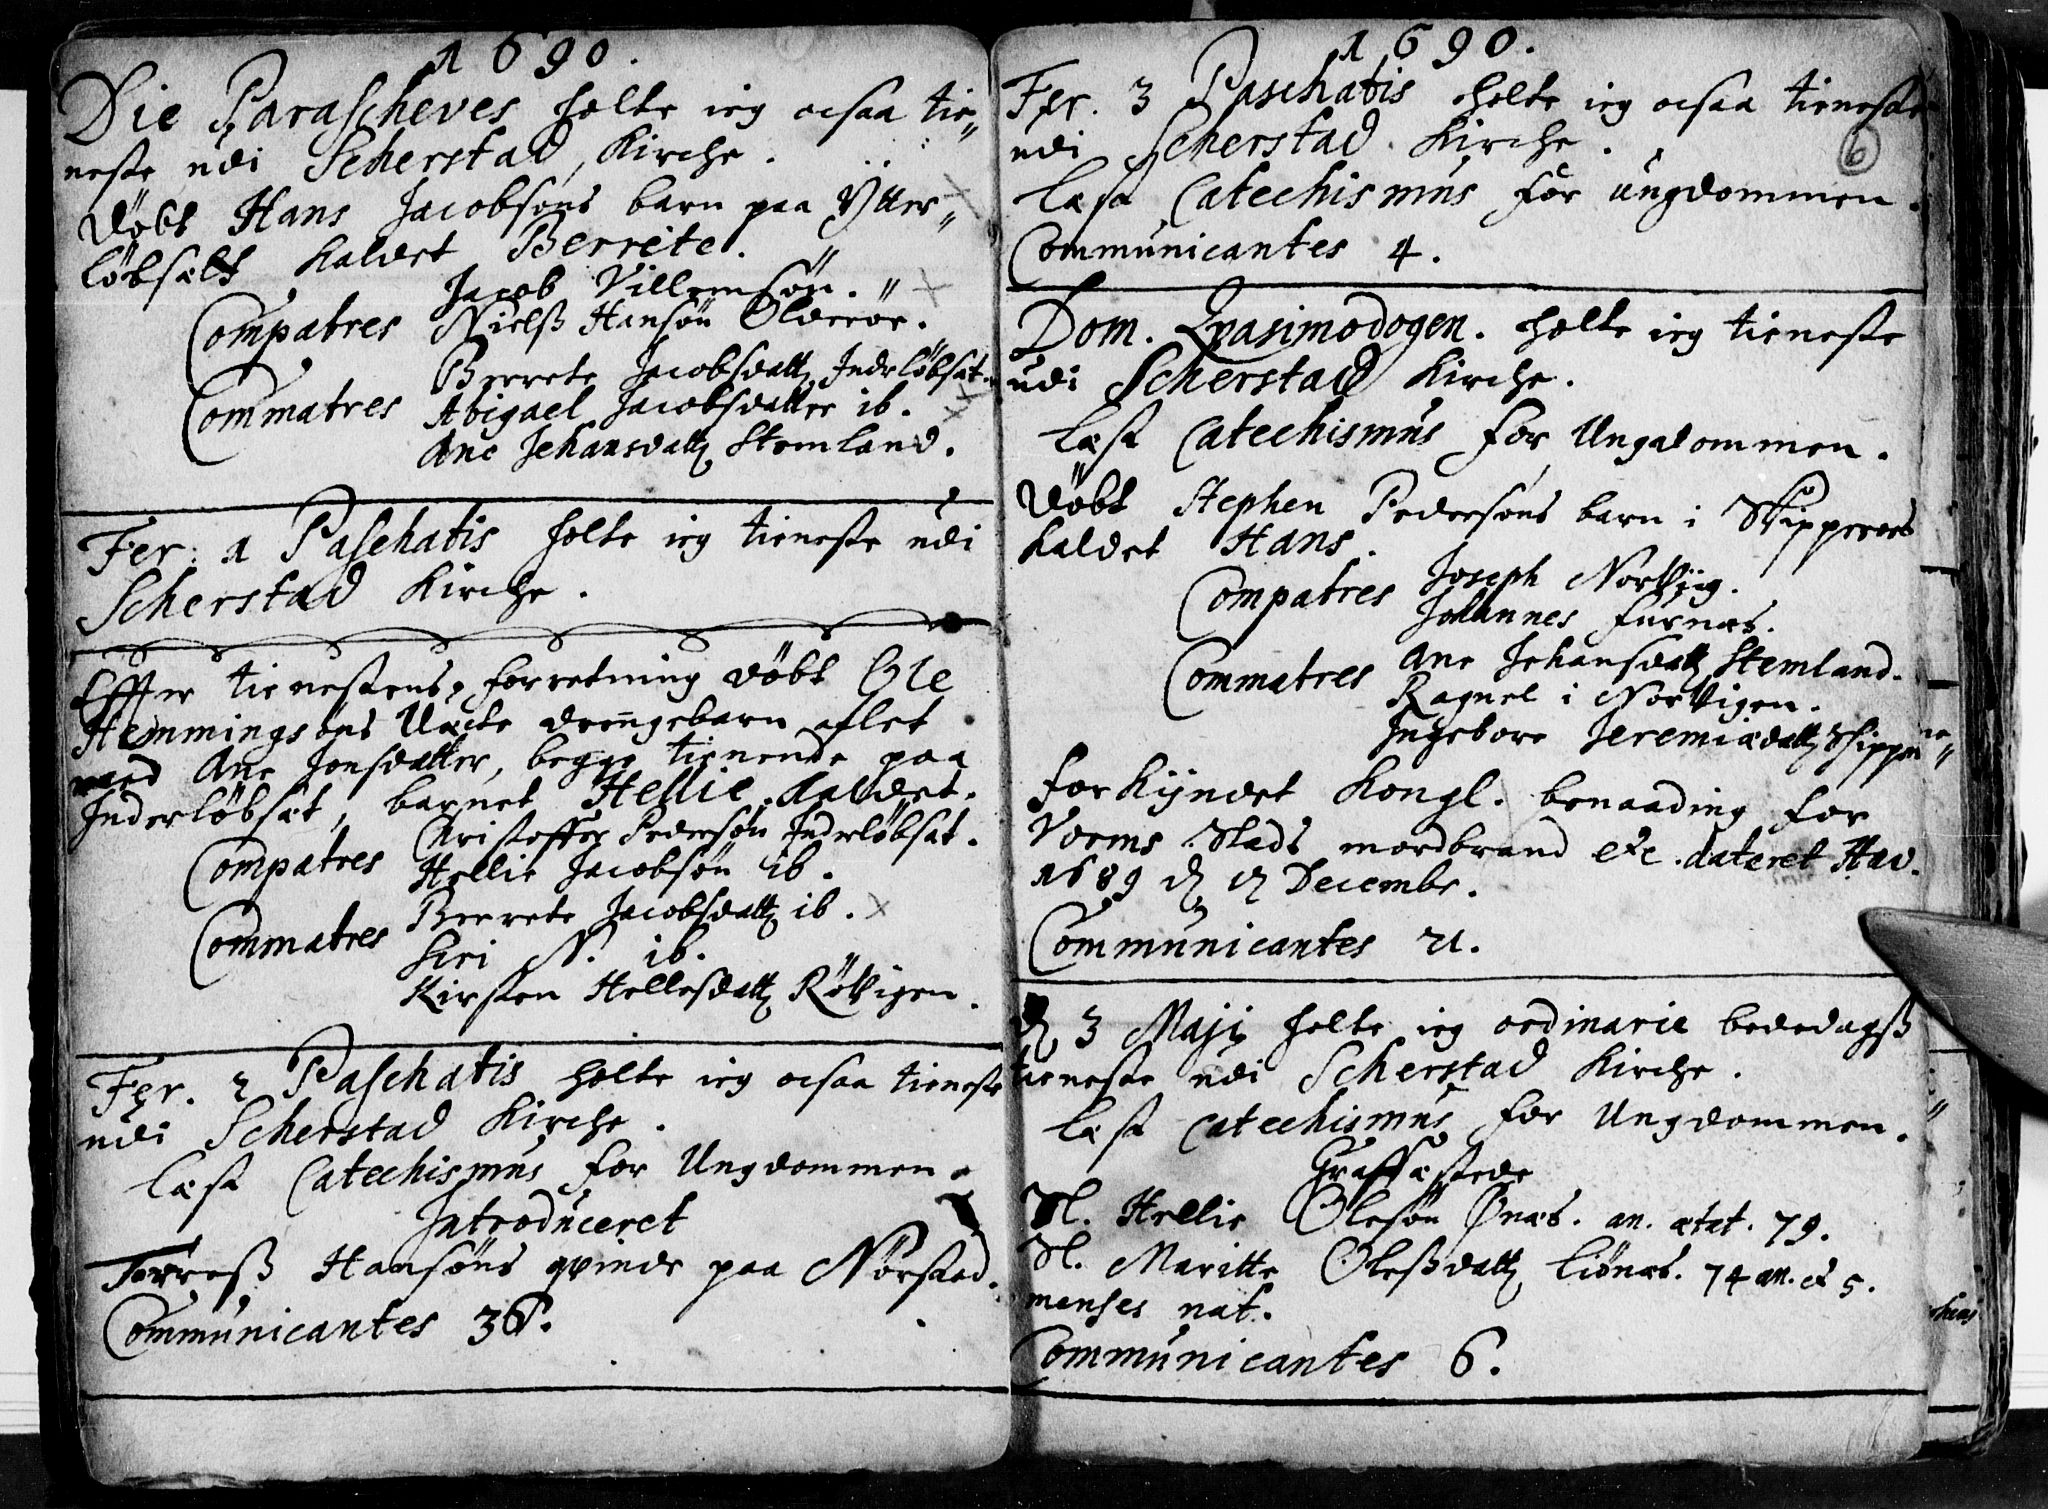 1690.
Die Parascheves holte ieg ocsaa tie„
neste udi Scherstad Kirche.
Døbt Hans Jacobsøns barn paa Ytter„
løbsætt kaldet Berrete.
Jacob Villemsøn. „
Compatres Nielß Hansøn Olderøe.
Berrete Jacobsdatt Inderløbsæt.
Commatres Abigael Jacobsdatter ib.
Ane Jehansdatt Stemland.
Fer. 1 Paschatis holte ieg tieneste udi
Scherstad Kirche.
Effter tienestens forretning døbt Ole
Hemmingsøns Uæcte drengebarn aflet
med Ane Jonsdatter, begge tienende paa
Inderløbsæt, barnet Hellie kaldet.
Christoffer Pedersøn Inderløbsæt.
Compatres Hellie Jacobsøn ib.
Berrete Jacobsdatt ib.
Commatres Siri N. ib.
Kirsten Hellesdatt Røsvigen.
Fer. 2 Paschatis holte ieg ocsaa tieneste
udi Scherstad Kirche.
Læst Catechismus for Ungdommen.
Introduceret
Torreß Hansøns qvinde paa Nørstad.
Communicantes 36.
1690.
6
Fer. 3 Paschatis holte ieg ocsaa tieneste
udi Scherstad Kirche.
Læst Catechismus for ungdommen.
Communicantes 4.
Dom. Qvasimodogen. holte ieg tieneste
udi Scherstad Kirche.
Læst Catechismus for Ungdommen.
Døbt Stephen Pedersøns barn i
kaldet Hans.
Compatres Joseph Norviig.
Johannes Furnæs.
Commatres Ane Jehansdatt Stemland.
Ragnel i Norvigen.
Ingebore Jeremiædatt
Forkyndet Kongl. benaading for
Vorms Stads mordbrand etc. dateret Hav.
1689 d 17 Decembr.
Communicantes 21.
d 3 Maji holte ieg ordinarie bededagß
tieneste udi Scherstad Kirche.
Læst Catechismus for Ungdommen.
Graffæstede
Sl. Hellie Olesøn Ønæs. an. ætat. 79.
Sl. Maritte Oleßdatt Liønæs. 74 an. et 5.
menses nat.
Communicantes 6.